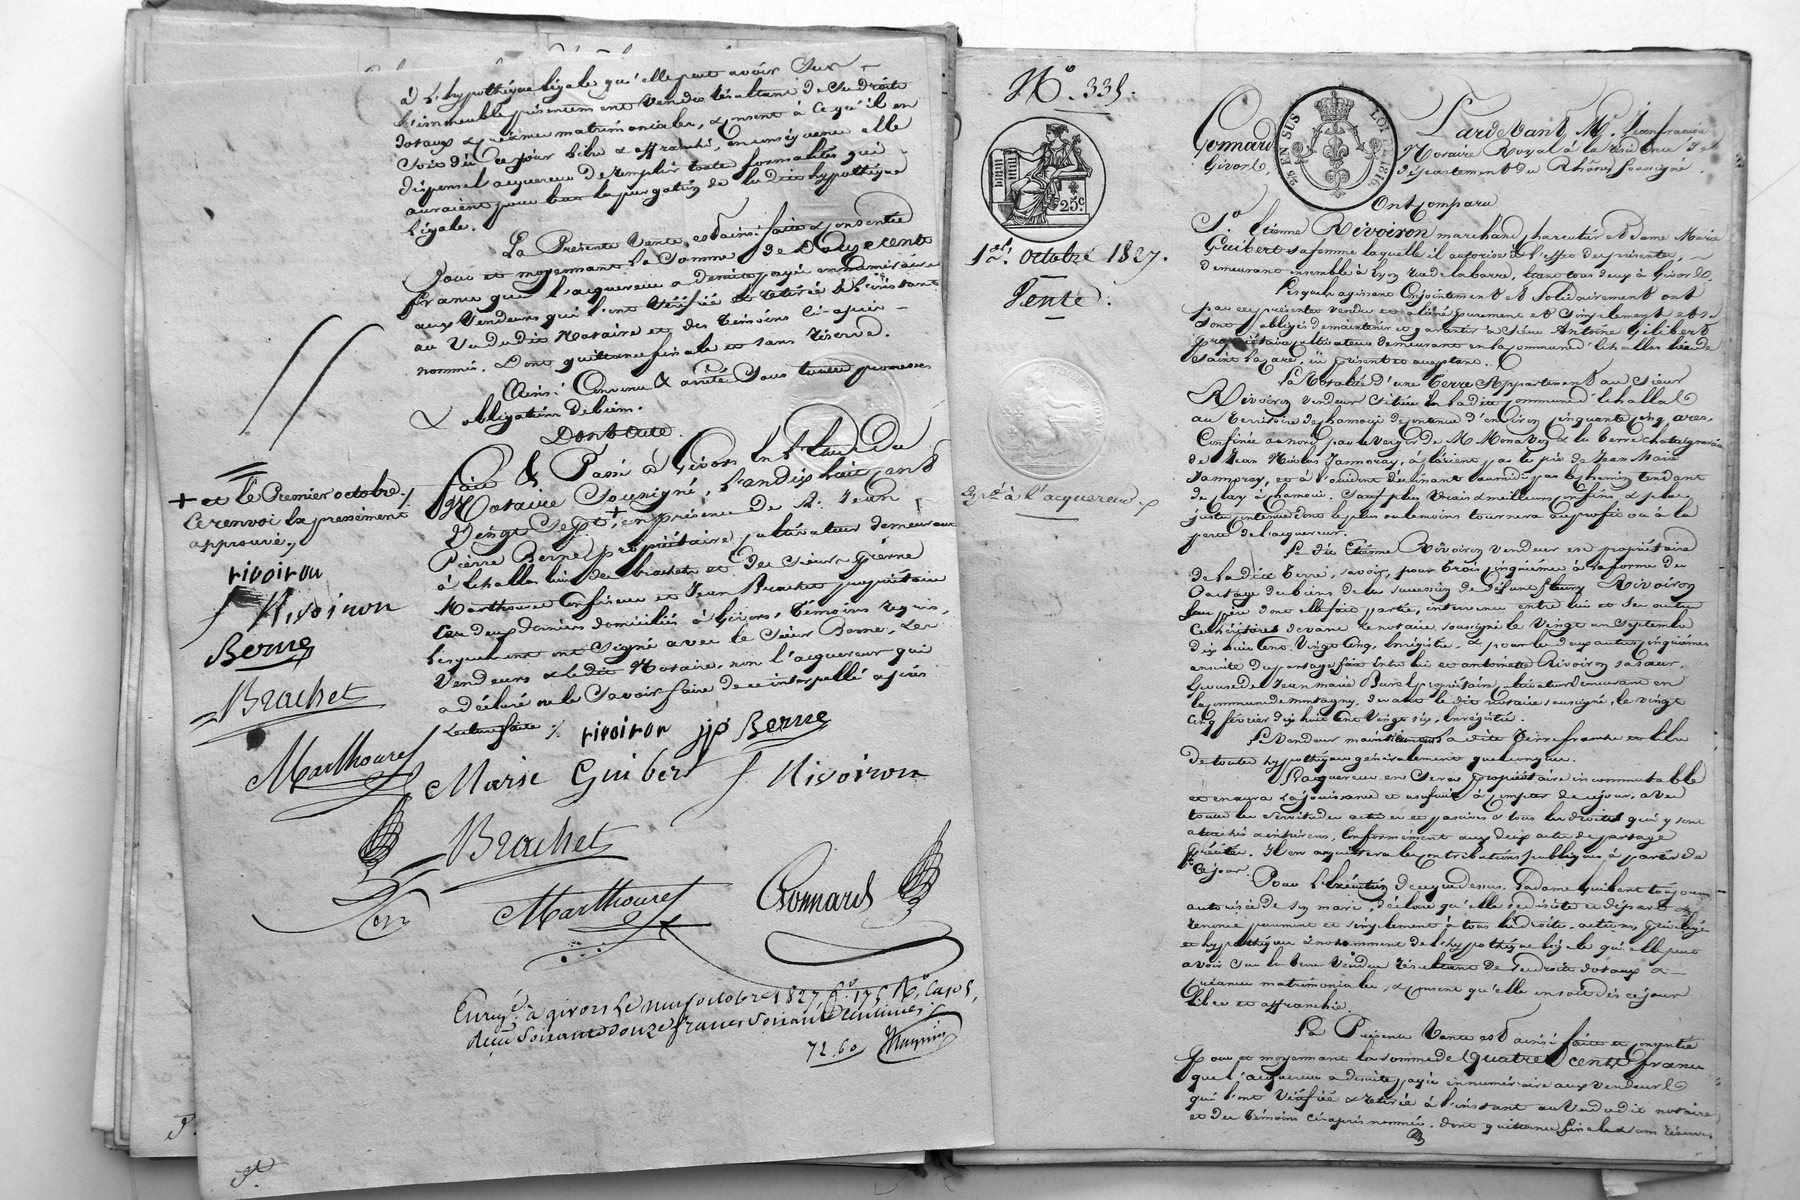 à l'hypothèque légale qu'elle peut avoir sur
l'immeuble présentement vendu résultant de ses droits
dotaux & créances matrimoniales, consent à ce qu'il en
soit dès ce jour libre & affranchi, en conséquence elle
dispense l'acquereur de remplir toute formalités qui
auraient pour but la purgation de la dite hypothèque
légale.
La Présente Vente, est ainsi faite & consentie
pour et moyennant la somme de Douze cents
francs que l'acquereur a de suite payée en numéraire
aux Vendeurs qui l'ont vérifiée & retirée à l'instant
au vu du dit Notaire et des témoins ci-après
nommés. Dont quittance finale et sans réserve.
Ainsi Convenu & arrêté Sous toutes promesses
& obligations de biens.
Dont Acte.
Fait & Passé à Givors en l'Etude du
Notaire Soussigné, L'an dix huit cent
Vingt Sept + en présence de Sr. Jean
Pierre Berne propriétaire cultivateur demeurant
à Echallas lieu de Brachet et des sieurs Etienne
Marthouret Confiseur et Jean Brachet propriétaire
Ces deux derniers domiciliés à Givors, témoins requis,
Lesquels ont signé avec le Sieur Berne, Les
Vendeurs & le dit Notaire, non l'acquereur qui
a déclaré ne le savoir faire de ce interpellé après
Lecture faite ./.
+ et le Premier octobre./
Ce renvoi Expressément
approuvé./
rivoiron
Rivoiron
Berne
Brachet
Marthouret
rivoiron jp Berne
Marie Guibert Rivoiron
Brachet
Marthouret
Gonnard
Enregé. à givors le neuf octobre 1827, fo. 175 Ro. Cases,
Reçu Soixante douze francs Soixante centimes
72.60
No. 335.
25c
1er. Octobre 1827.
Vente.
Expé à l'acquereur
25 EN SUS
LOI 1816.
Pardevant Me. Jean françois
Gonnard Notaire Royal à la résidence de
Givors, département du Rhône soussigné.
Ont Comparu
Sr. Etienne Rivoiron marchand charcutier et dame Marie
Guibert sa femme laquelle il autorise à l'effet des présentes,
demeurant ensemble à Lyon rue de la barre, étant tous deux à Givors
Lesquels agissant Conjointement et Solidairement ont
par ces présentes vendu et aliéné purement et simplement et se
sont obligés de maintenir et garantir à Sieur Antoine Gilibert
propriétaire cultivateur demeurant en la commune d'Echallas lieu de
Saint Lazare, ici présent et acceptant.
La Totalité d'une terre Appartenant au Sieur
Rivoiron vendeur située en la dite commune d'Echallas
au territoire de chamois de contenue d'environ cinquante cinq ares,
Confinée au nord par le verger de M. Monavon & la terre chataigneraie
de Jean Nicolas Jamoray, à l'orient par le pré de Jean Marie
Jamoray, et à l'ouest déclinant au midi par le chemin tendant
de play à chamois. Sauf plus vrais & meilleurs confins, & plus
juste contenue dont le plus ou le moins tournera au profit ou à la
perte de l'acquereur.
Le dit Etienne Rivoiron vendeur est propriétaire
de la dite terre, savoir, pour trois cinquièmes à la forme du
Partage des biens de la succession de défunt fleury Rivoiron
leur père dont elle fait partie, intervenu entre lui et ses autres
cohéritiers devant le notaire soussigné le vingt un septembre
dix huit cent vingt cinq, enregistré, & pour les deux autres cinquièmes
ensuite du partage fait entre lui et antoinette Rivoiron sa sœur,
épouse de Jean marie Burel propriétaire, cultivateur demeurant en
la commune de montagny, devant le dit notaire soussigné, le vingt
cinq février dix huit cent vingt six, enregistré.
Le Vendeur maintiendra la dite terre franche et libre
de toutes hypothèques généralement quelconques.
L'acquereur en sera propriétaire incommutable
et en aura la jouissance et usufruit à compter de ce jour, avec
toutes les servitudes actives et passives & tous les droits qui y sont
attachés & inhérens, Conformément aux deux actes de partage
précités. Il en acquittera les contributions publiques à partir de
ce jour.
Pour L'Exécution de ce que dessus, La dame Guibert toujours
autorisée de son mari, déclare qu'elle se désiste et départ &
renonce purement et simplement à tous les droits, actions, privilège
et hypothèque & notamment de l'hypothèque légale qu'elle peut
avoir sur la terre Vendue résultant de ses droits dotaux &
Créances matrimoniales, & consent qu'elle en soit dès ce jour
libre et affranchie.
La Présente Vente est ainsi faite et consentie
pour et moyennant la somme de Quatre cents francs
que l'acquereur a de suite payée en numéraire aux vendeurs
qui l'ont vérifiée & retirée à l'instant au vu du dit notaire
et des témoins ci-après nommés. dont quittance finale & sans réserve.